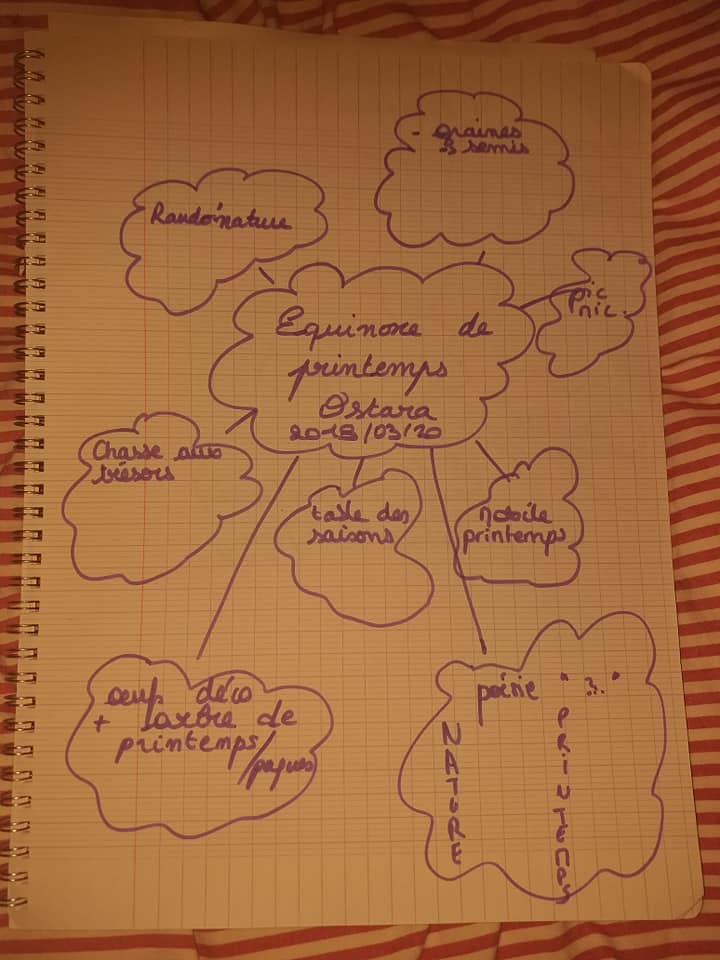 - graines
& semis
Rando nature
pic
nic.
Equinoxe de
printemps
Ostara
2018/03/20
Chasse aux
trésors
table des
saisons
Mobile
printemps
œuf déco
+ l'arbre de
printemps
/pâques
poésie " & "
NATURE
PRINTEMPS